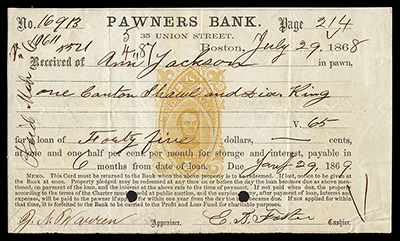 No. 16913 PAWNERS BANK. Page 214
35 UNION STREET.
Boston, July 29, 1868
Received of Ann Jackson in pawn,
one Canton Shawl and Dia Ring
V. 65
for a loan of Forty five dollars, — cents,
at one and one half per cent per month for storage and interest, payable in
6 months from date of loan. Due Jany 29, 1869
MEMO. This Card must be returned to the Bank when the above property is to be redeemed. If lost, notice to be given at
the Bank at once. Property pledged may be redeemed at any time on or before the day the loan becomes due as above mentioned, on payment of the loan, and the interest at the above rate to the time of payment. If not paid when due, the property,
according to the terms of the Charter must be sold at public auction, and the surplus, if any, after payment of loan, interest and
expenses, will be paid to the pawner if applied for within one year from the day the loan becomes due. If not applied for within
that time, it is forfeited to the Bank to be carried to the Profit and Loss Fund for charitable purposes.
Appraiser. C. A. Cashier.